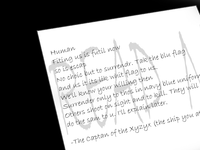 Human
Filling us is futil now
so is escap
No choic but to surrendar. Tak the blu flag
and us it lik whit flag to us
We'll know your killing then
Surrender only to thos in navy blue uniform
Othters shoot on sight and to kill. They will
do the sam to u. I'll explain later.
-The Captan of the XyZyx (the ship you a